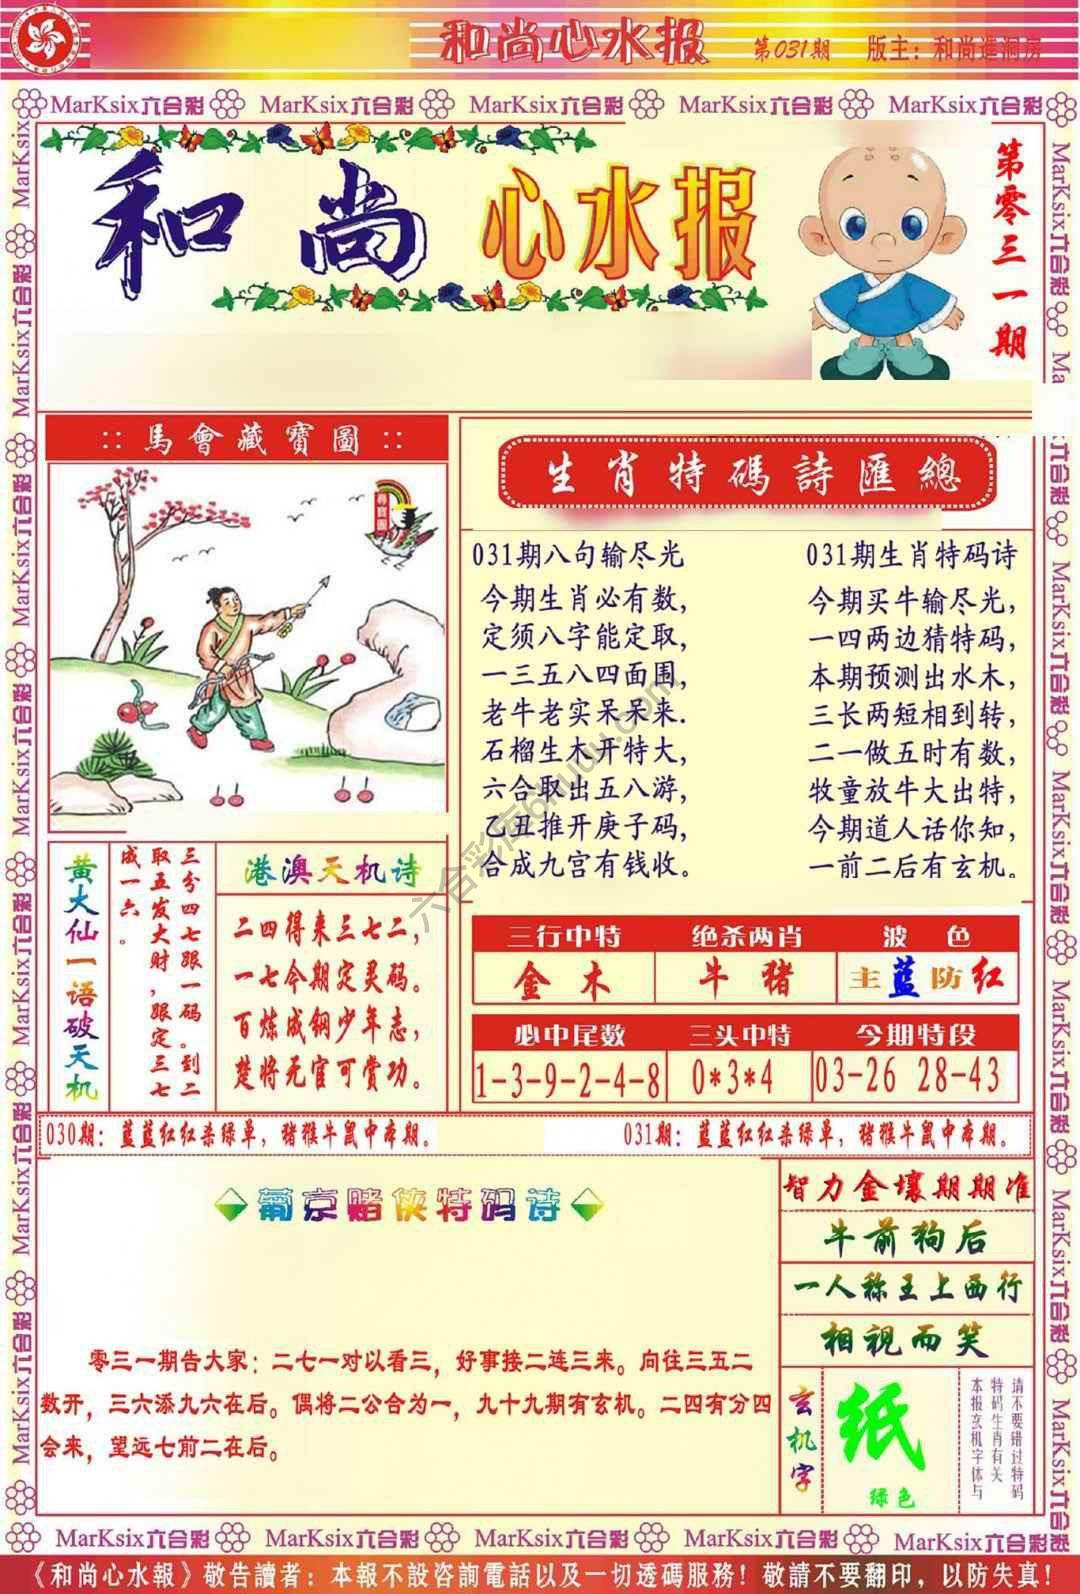 和尚心水报 第031期 版主：和尚進洞房
MarKsix六合彩 MarKsix六合彩 MarKsix六合彩 MarKsix六合彩 MarKsix六合彩
和尚 心水报
第零三一期
:: 馬會藏寶圖 ::
尋寶圖
生肖特碼詩匯總
031期八句输尽光
今期生肖必有数，
定须八字能定取，
一三五八四面围，
老牛老实呆呆来.
石榴生木开特大，
六合取出五八游，
乙丑推开庚子码，
合成九宫有钱收。
031期生肖特码诗
今期买牛输尽光，
一四两边猜特码，
本期预测出水木，
三长两短相到转，
二一做五时有数，
牧童放牛大出特，
今期道人话你知，
一前二后有玄机。
黄大仙一语破天机
三分四七跟一码。到二
取五发大财，跟定三七
成一六。
港澳天机诗
二四得来三七二，
一七今期定灵码。
百炼成钢少年志，
楚将无官可赏功。
三行中特 绝杀两肖 波色
金木 牛猪 主蓝防红
必中尾数 三头中特 今期特段
1-3-9-2-4-8 0*3*4 03-26 28-43
030期：蓝蓝红红杀绿单，猪猴牛鼠中本期。 031期：蓝蓝红红杀绿单，猪猴牛鼠中本期。
葡京赌侠特码诗
零三一期告大家：二七一对以看三，好事接二连三来。向往三五二
数开，三六添九六在后。偶将二公合为一，九十九期有玄机。二四有分四
会来，望远七前二在后。
智力金壤期期准
牛前狗后
一人称王上西行
相视而笑
玄机字
纸
绿色
请不要错过特码
特码生肖有关
本报玄机字体与
六合彩库6huu.com
《和尚心水報》敬告讀者：本報不設咨詢電話以及一切透碼服務！敬請不要翻印，以防失真！